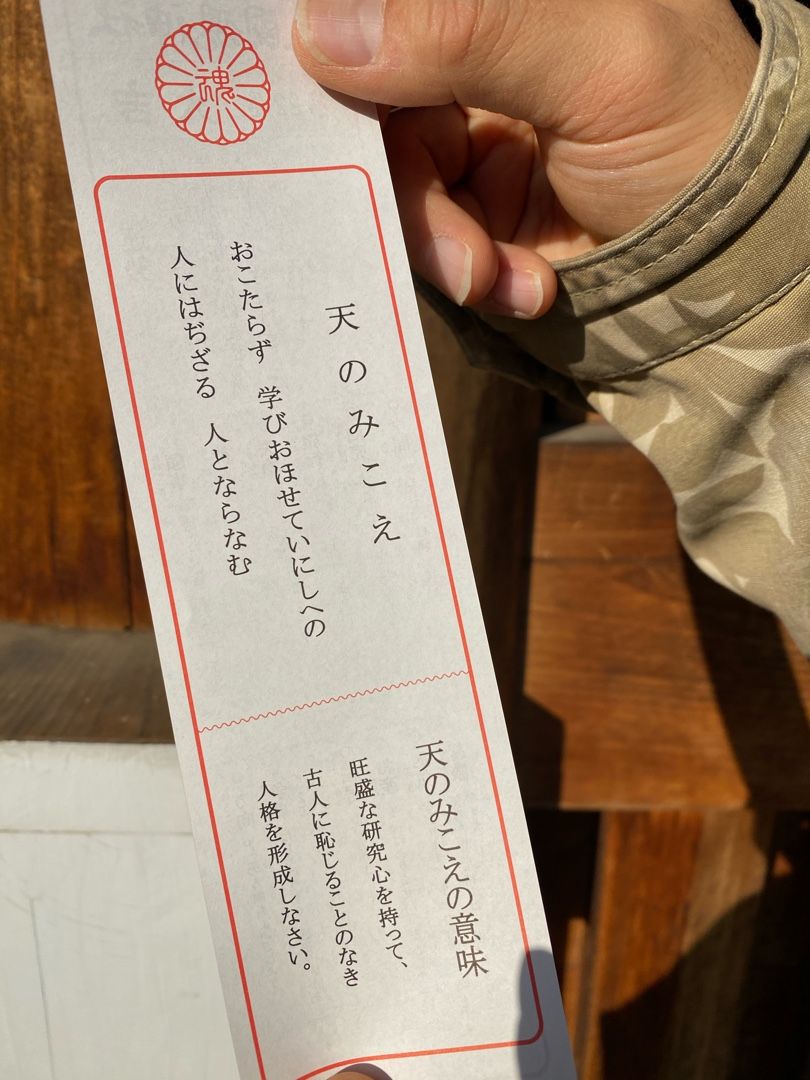 魂
天のみこえ
おこたらず　学びおほせていにしへの
人にはぢざる　人とならなむ
天のみこえの意味
旺盛な研究心を持って、
古人に恥じることのなき
人格を形成しなさい。